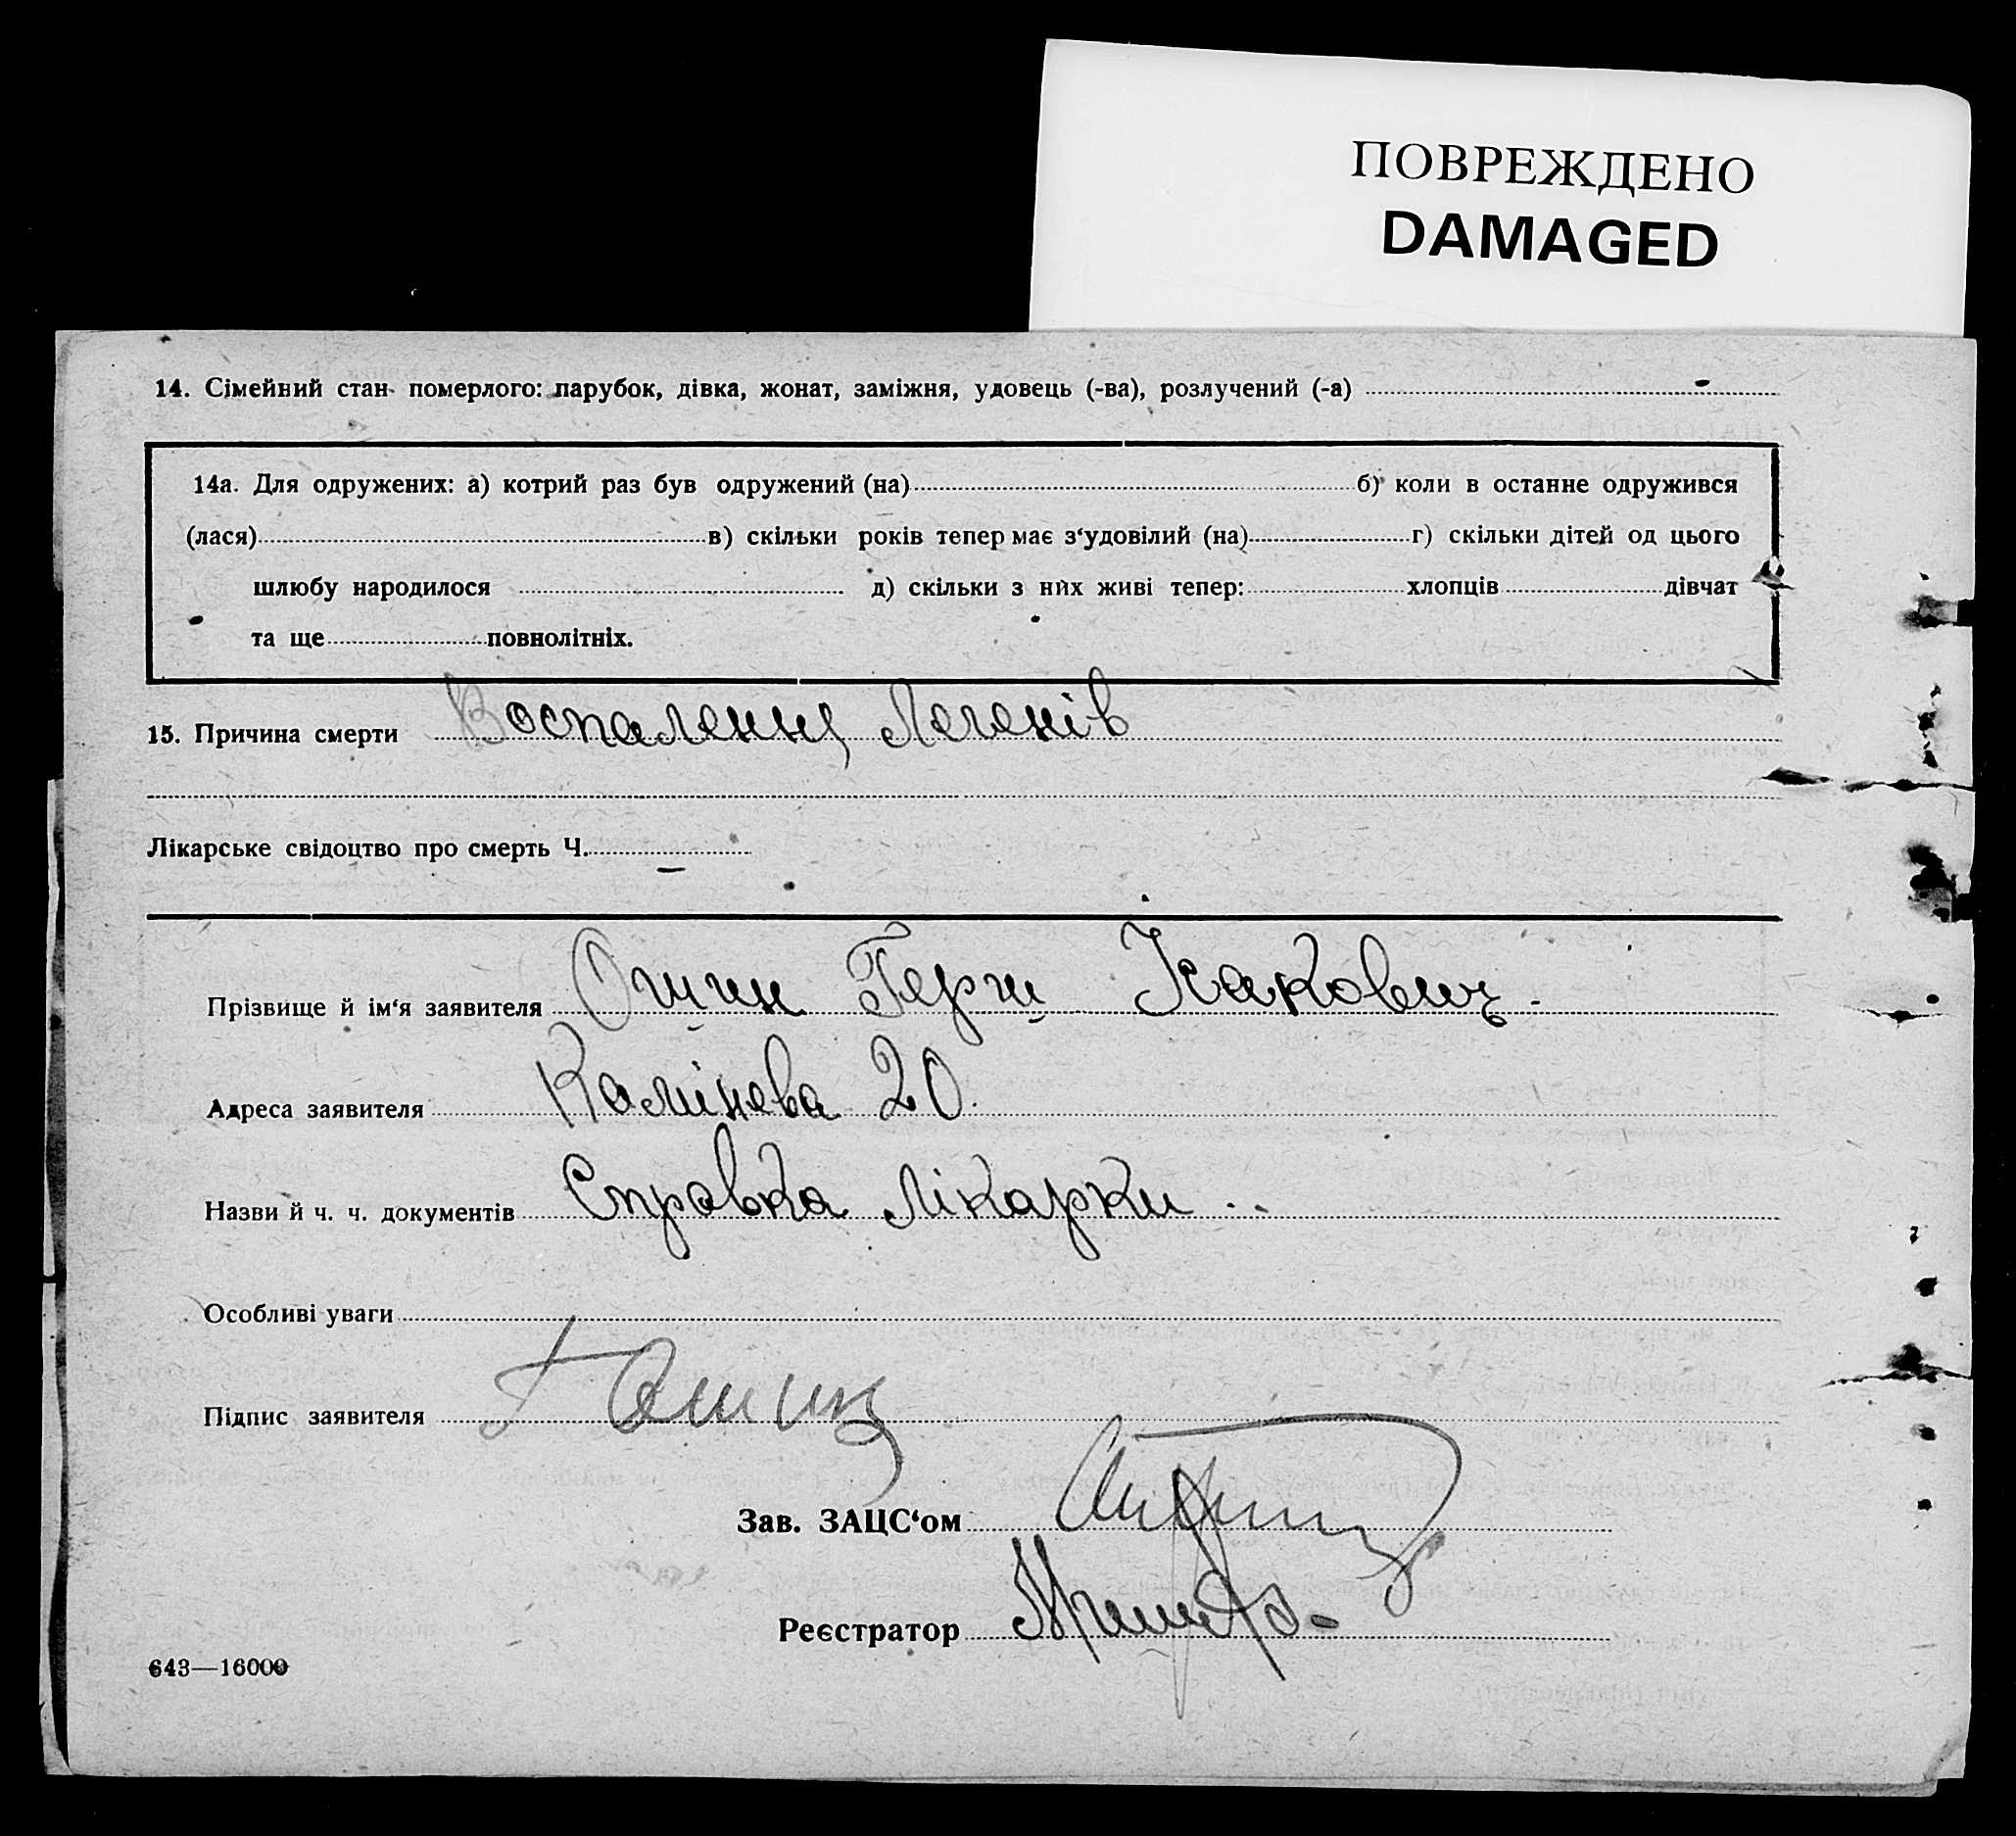 ПОВРЕЖДЕНО
DAMAGED
14. Сімейний стан померлого: парубок, дівка, жонат, заміжня, удовець (-ва), розлучений (-а)
14а. Для одружених: а) котрий раз був одружений (на) б) коли в останнє одружився
(лася) в) скільки років тепер має з‘удовілий (на) г) скільки дітей од цього
шлюбу народилося д) скільки з них живі тепер: хлопців дівчат
та ще повнолітніх.
15. Причина смерти Воспалення Легенів
Лікарське свідоцтво про смерть Ч. —
Прізвище й ім‘я заявителя Ошин Герш
Адреса заявителя 20.
Назви й ч. ч. документів Справка лікарки
Особливі уваги
Підпис заявителя Г Ошин
Зав. ЗАЦС‘ом
Реєстратор
643—16000